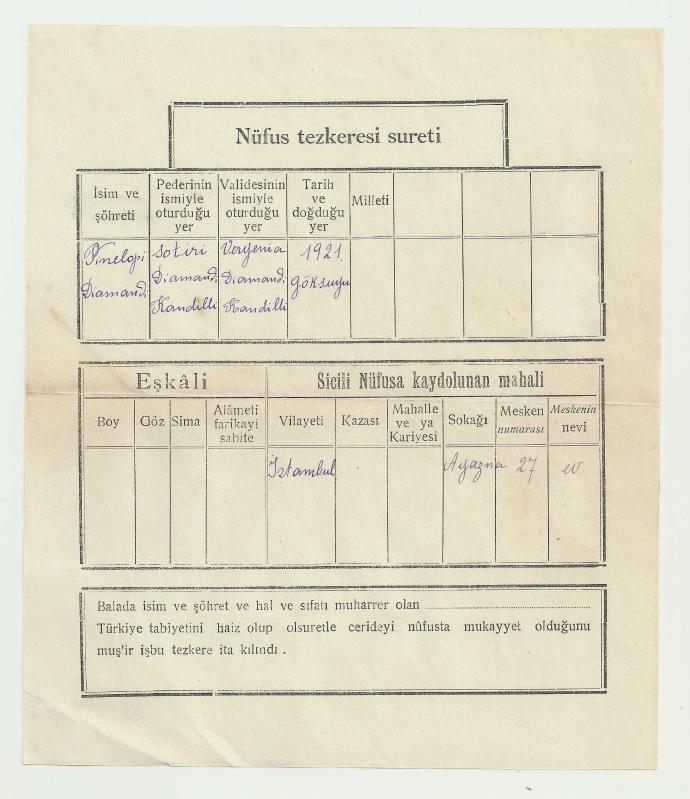 Nüfus tezkeresi sureti
İsim ve şöhreti
Pederinin ismiyle oturduğu yer
Validesinin ismiyle oturduğu yer
Tarih ve doğduğu yer
Milleti
Pinelopi Diamandi
Sotiri Diamandi Kandilli
Verjenia Diamandi Kandilli
1921 Göksuyu
Eşkâli
Sicili Nüfusa kaydolunan mahali
Boy
Göz
Sima
Alâmeti farikayi sabite
Vilayeti
Kazası
Mahalle ve ya Kariyesi
Sokağı
Mesken numarası
Meskenin nevi
İstambul
Ayazma
27
ev
Balada isim ve şöhret ve hal ve sıfatı muharrer olan
Türkiye tabiyetini haiz olup olsuretle cerideyi nûfusta mukayyet olduğunu
muş'ir işbu tezkere ita kılındı .